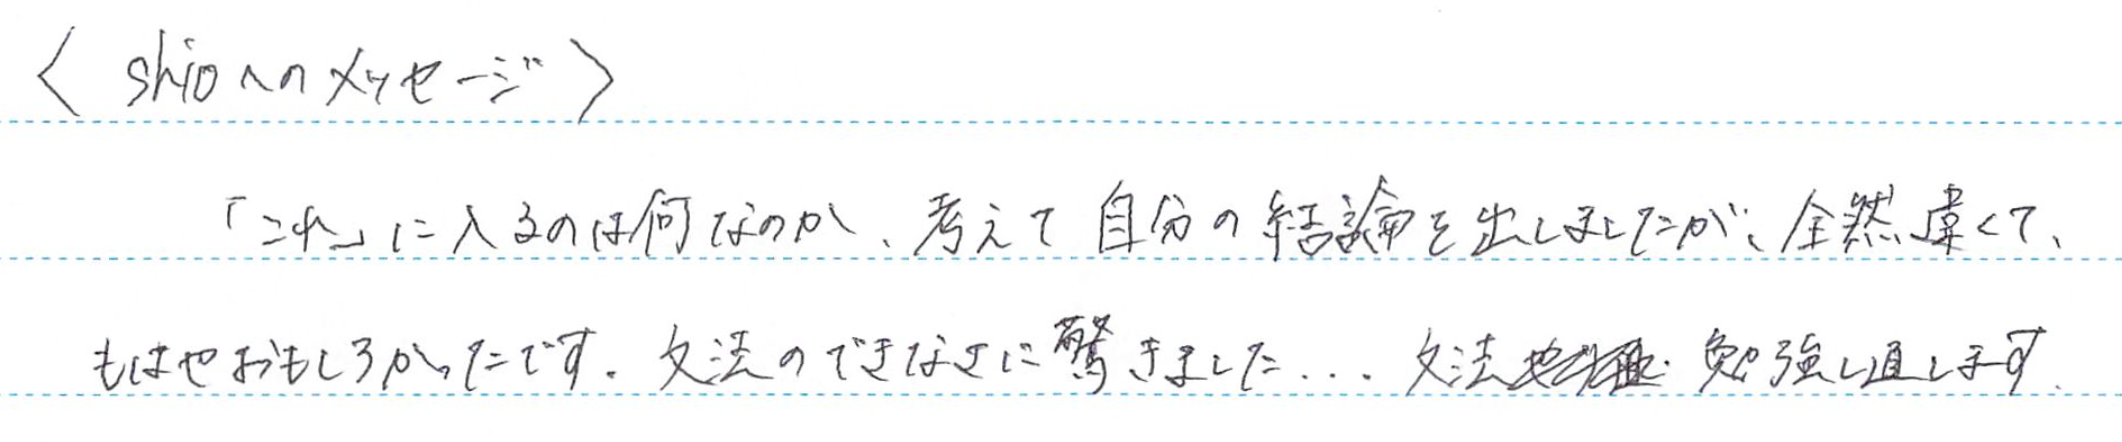 〈 shioへのメッセージ 〉
「これ」に入るのは何なのか、考えて自分の結論を出しましたが、全然違くて、
もはやおもしろかったです。文法のできなさに驚きました... 文法 勉強し直します.